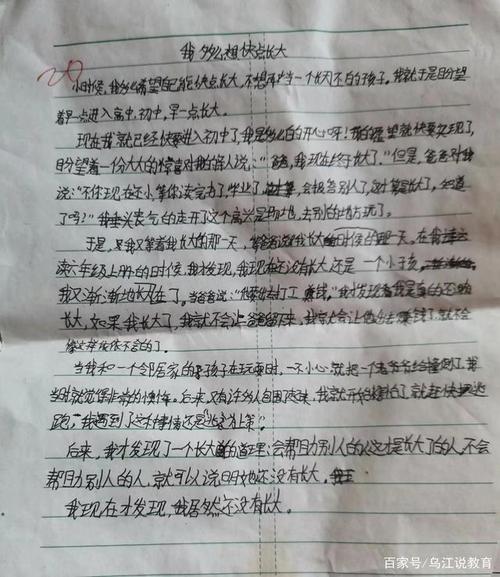 我多么想快点长大
20
小时候,我多么希望自己能快点长大,不想再当一个长不大的孩子。我就于是盼望
着早点进入高中,初中,早一点长大。
现在我就已经快要进入初中了,我是多么的开心呀!我的愿望就快要实现了,
盼望着一份大大的惊喜对我的人说:“爸爸,我现在终于长大了。”但是,爸爸对我
说:“不你现在还小,等你读完大学,毕业了,会报答别人了,这才算是长大。知道
了吗?”我垂头丧气的走开了这个高兴是场地,去别的地方玩了。
于是,我又等着我长大的那一天,在我
读六年级上册的时候,我才发现,我现在还没有长大还是一个小孩,
我又渐渐地长大了。当爸爸说:“出去打工,赚钱。”我才发现我是真的还没
长大,如果我长大了,我就不会让爸爸出去,我就不会
像这样依依不舍的了。
当我和一个邻居家的孩子在玩耍时,一不小心就把一个老爷爷给撞倒了,我
当时就觉得非常的愧疚。后来,又有许多人包围过来,我就开始害怕了就赶快逃
跑,“我遇到了这种事情还是逃为上策”。
后来,我才发现了一个长大的道理:会帮助别人的人这才是长大了的人,不会
帮助别人的人,就可以说明他还没有长大。
我现在才发现,我居然还没有长大。
百家号/乌江说教育